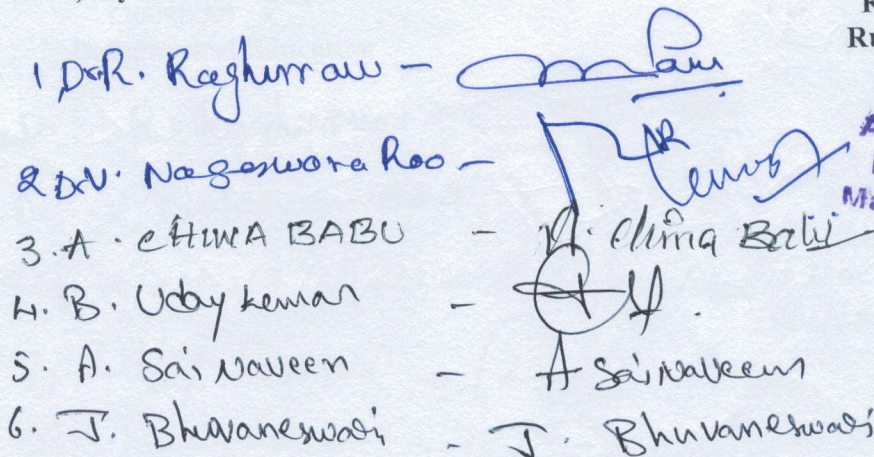 1 Dr.R. Raghurram -
2 Dr.V. Nageswora Rao -
3. A. CHINA BABU - A. China Babu
4. B. Uday kumar -
5. A. Sai Naveen - A Sai Naveen
6. J. Bhuvaneswari - J. Bhuvaneswari